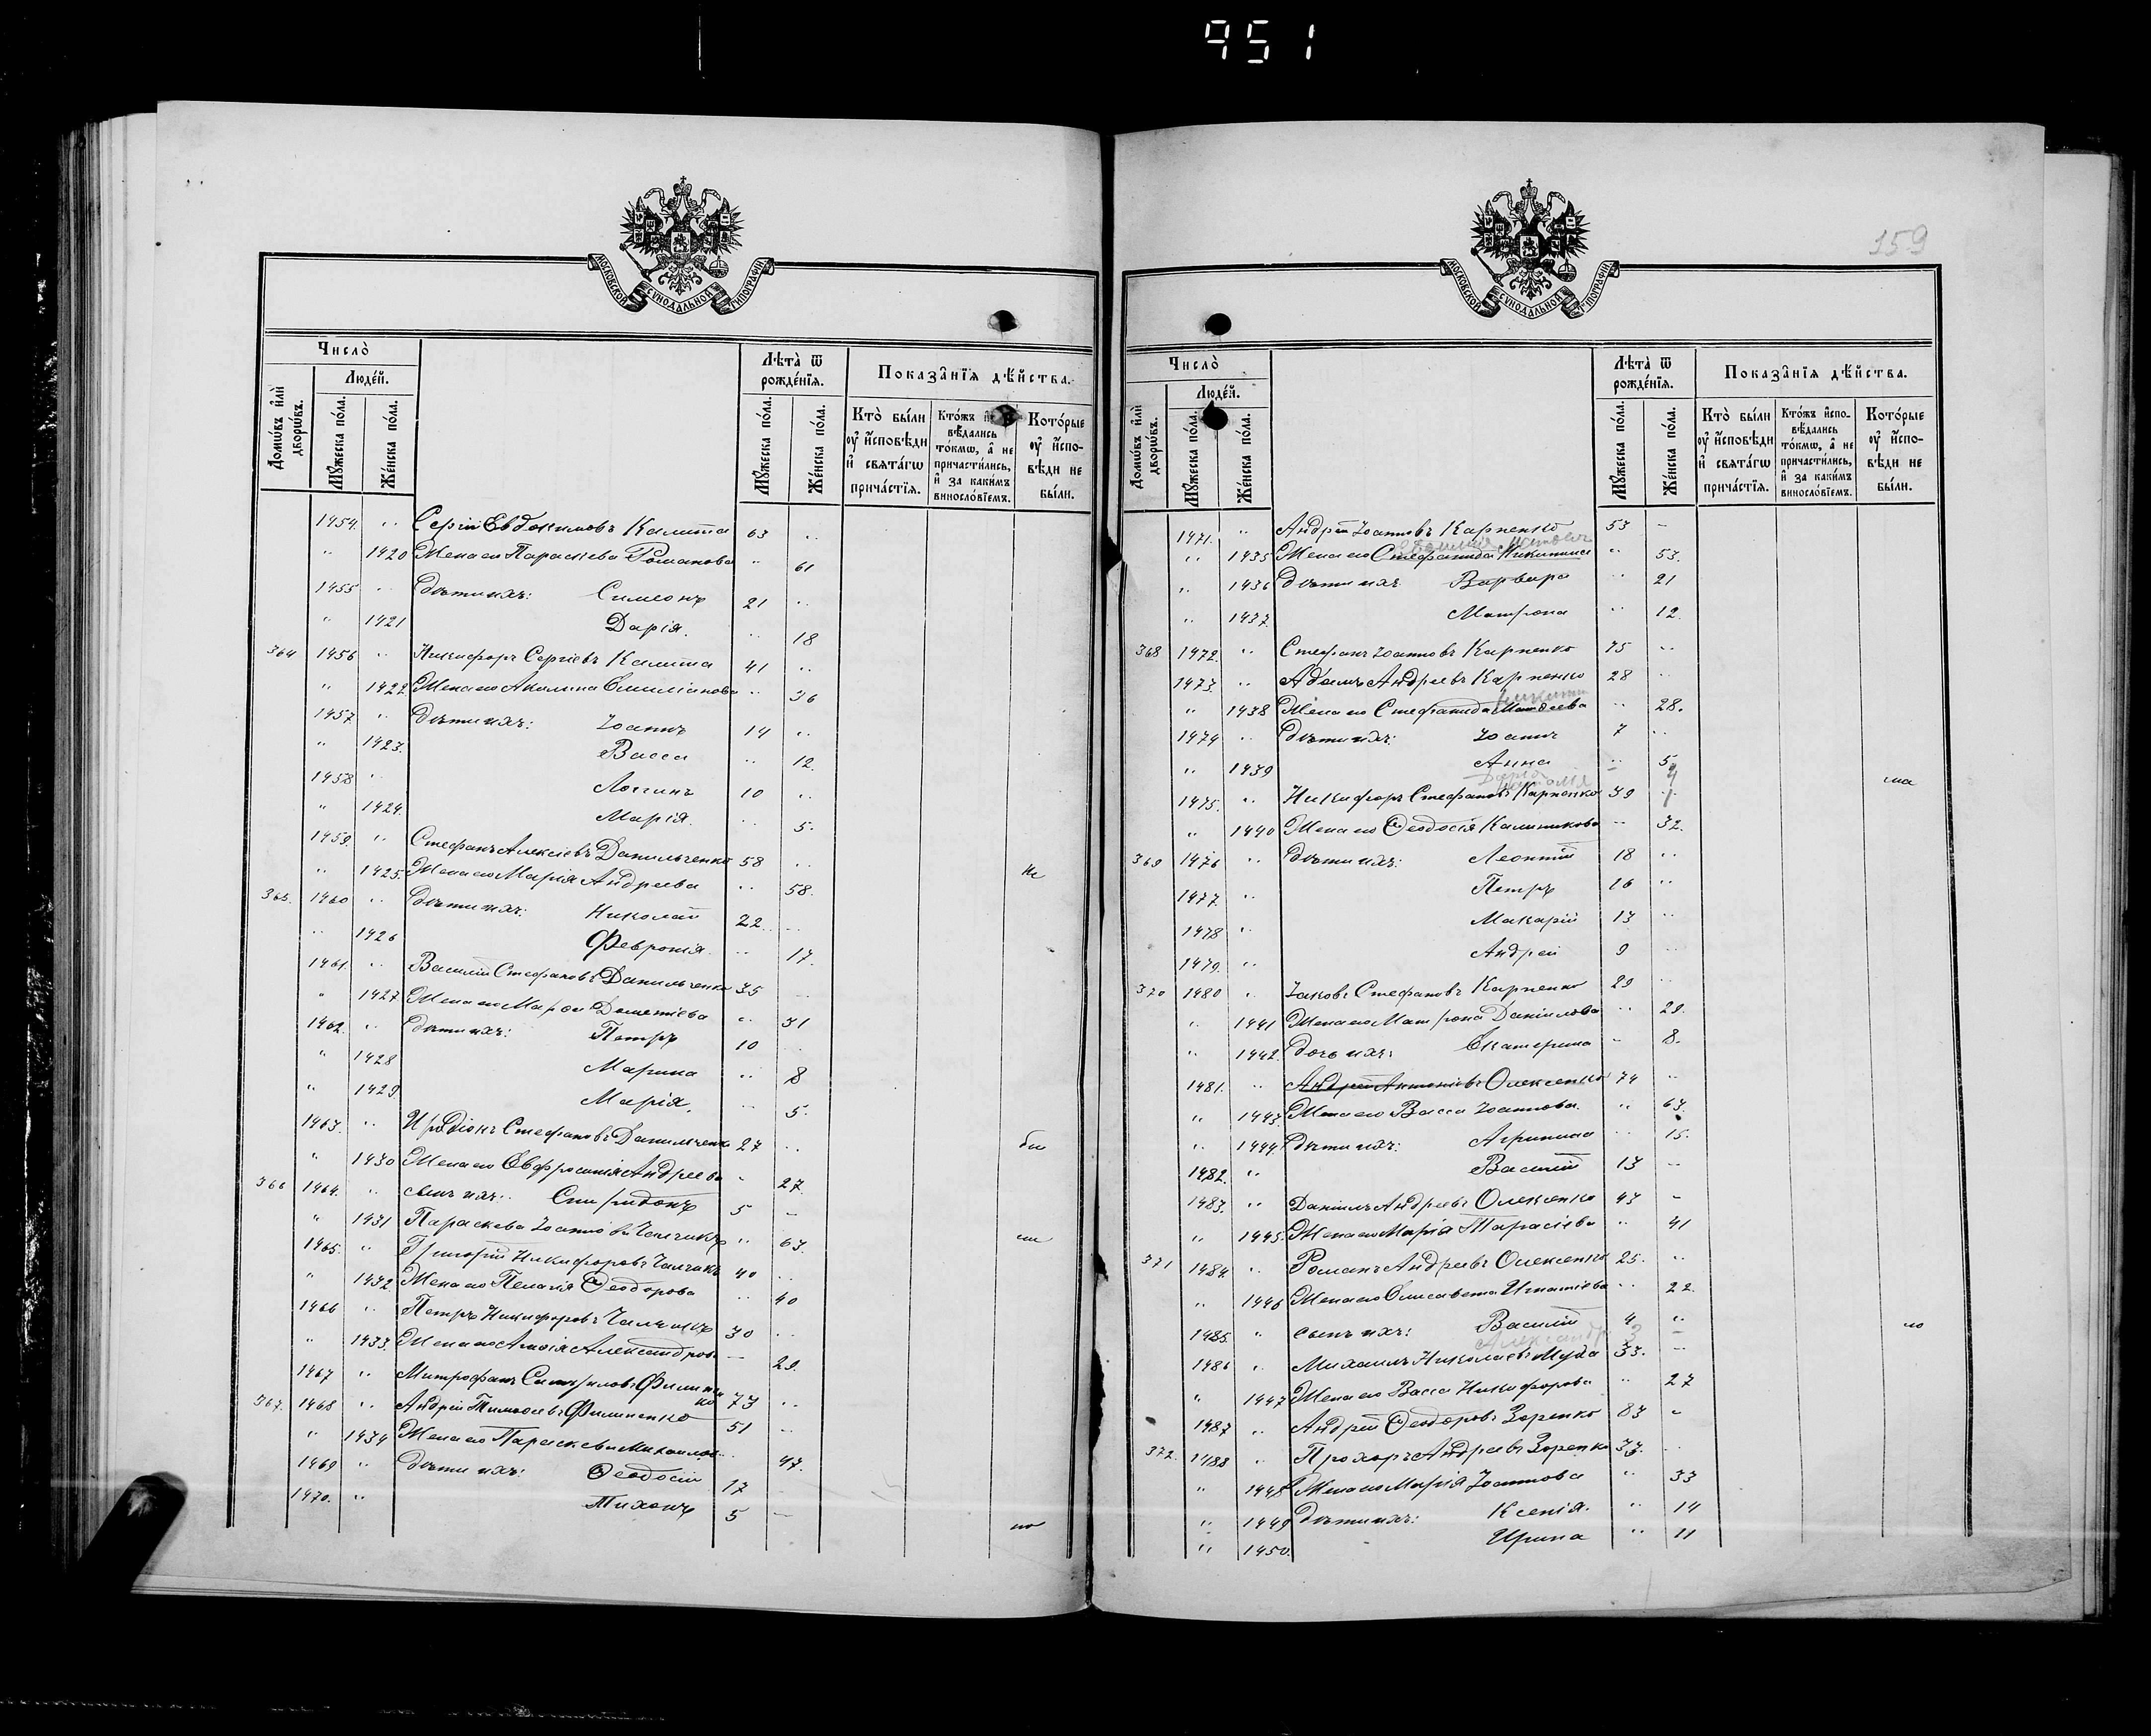 951
МОСКОВСКОЙ СѴНОДАЛЬНОЙ ТИПОГРАФІИ.
Число̀
Людей.
Домѡвъ и҆лѝ дворѡвъ.
Мꙋжеска по́ла.
Же́нска по́ла.
Лѣта̀ ѿ рожде́нїѧ.
Мꙋжеска по́ла.
Же́нска по́ла.
Показа̑нїѧ дѣ́йства.
Кто̀ бы́ли ᲂу҆ и҆сповѣди и҆ свѧта́гѡ прича́стїѧ.
Кто́жъ вѣдались то́кмѡ, а҆ не причасти́лись, и҆ за каки́мъ винословїемъ.
Кото́рые ᲂу҆ и҆спо-вѣди не бы́ли.
1454. „ Сергій Евдокимовъ Калита 63 „
„ 1420 Жена его Параскева Романова „ 61
1455 „ Дѣти ихъ: Симеонъ 21 „
„ 1421 Дарія. „ 18
364 1456 „ Никифоръ Сергіевъ Калита 41 „
„ 1422 Жена его Акилина Емиліанова „ 36
1457 „ Дѣти ихъ: Іоаннъ 14 „
„ 1423. Васса „ 12.
1458 „ Логинъ 10 „
„ 1424. Марія. „ 5.
1459. „ Стефанъ Алексіевъ Данильченко 58 „
„ 1425. Жена его Марія Андреева „ 58.
365. 1460 „ Дѣти ихъ: Николай 22 „
„ 1426 Февронія. „ 17.
1461. „ Василій Стефановъ Данильченко 35 „
„ 1427 Жена его Марфа Дометіева „ 31
1462. „ Дѣти ихъ: Петръ 10 „
„ 1428 Марина „ 8
„ 1429 Марія. „ 5.
1463. „ Иродіонъ Стефановъ Данильченко 27 „
„ 1430 Жена его Евфросинія Андреева „ 27.
366 1464. „ сынъ ихъ: Спиридонъ 5 –
„ 1431 Параскева Іоаннова „ 63.
1465. „ Григорій Никифоровъ 40 „
„ 1432 Жена его Пелагія Ѳеодорова „ 40
1466 „ Петръ Никифоровъ 30 „
„ 1433. Жена его Александрова – 29.
1467 „ Митрофанъ Филипенко 73 „
367. 1468 „ Андрей Тимоѳеевъ Филипенко 51 –
„ 1434 Жена его Параскева Михаилова „ 47.
1469 „ Дѣти ихъ: Ѳеодосій 17
1470. „ Тихонъ 5 –
Не
бы
ли
но
159
МОСКОВСКОЙ СѴНОДАЛЬНОЙ ТИПОГРАФІИ.
Число̀
Людей.
Домѡвъ и҆лѝ дворѡвъ.
Мꙋжеска по́ла.
Же́нска по́ла.
Лѣта̀ ѿ рожде́нїѧ.
Мꙋжеска по́ла.
Же́нска по́ла.
Показа̑нїѧ дѣ́йства.
Кто̀ бы́ли ᲂу҆ и҆сповѣди и҆ свѧта́гѡ прича́стїѧ.
Кто́жъ и҆спо-вѣдались то́кмѡ, а҆ не причасти́лись, и҆ за каки́мъ винословїемъ.
Кото́рые ᲂу҆ и҆спо-вѣди не бы́ли.
1471. „ Андрей Іоанновъ Карпенко 53 –
„ 1435 Жена его Стефанида Никитина „ 53.
„ 1436 Дѣти ихъ Варвара „ 21
„ 1437. Матрона „ 12.
368 1472. „ Стефанъ Іоанновъ Карпенко 75 „
1473. „ Адамъ Андреевъ Карпенко 28 „
„ 1438 Жена его Стефанида Матѳеева „ 28.
1474 „ Дѣти ихъ: Іоаннъ 7 „
„ 1439 Анна „ 5
Дарія
1475. „ Никифоръ Стефановъ Карпенко 39 „
„ 1440 Жена его Ѳеодосія Калиникова „ 32.
369 1476 „ Дѣти ихъ: Леонтій 18 „
1477. „ Петръ 16 „
1478 „ Макарій 13 „
1479. „ Андрей 9 „
370 1480 „ Іаковъ Стефановъ Карпенко 29 „
„ 1441 Жена его Матрона Даніилова „ 29.
„ 1442. Дочь ихъ: Екатерина „ 8.
1481. „ Андрей Антоніевъ Олексенко 74 „
„ 1443. Жена его Васса Іоаннова. „ 63.
„ 1444. Дѣти ихъ: Агрипина „ 15.
1482. „ Василій 13 –
1483. „ Даніилъ Андреевъ Олексенко 43 –
„ 1445. Жена его Марія Тарасіева „ 41
371 1484. „ Романъ Андреевъ Олексенко 25. „
„ 1446 Жена его Елисавета Игнатіева „ 22.
1485. „ сынъ ихъ: Василій 4 „
Александр 3
1486 „ Михаилъ Николаевъ Муха 33. –
„ 1447 Жена его Васса Никифорова „ 27
1487 „ Андрей Ѳеодоровъ Зоренко 83 –
372. 1488 „ Прохоръ Андреевъ Зоренко 33. „
„ 1448 Жена его Марія Іоаннова „ 33
„ 1449 Дѣти ихъ: Ксенія. „ 14
„ 1450. Ирина „ 11
ма
ло